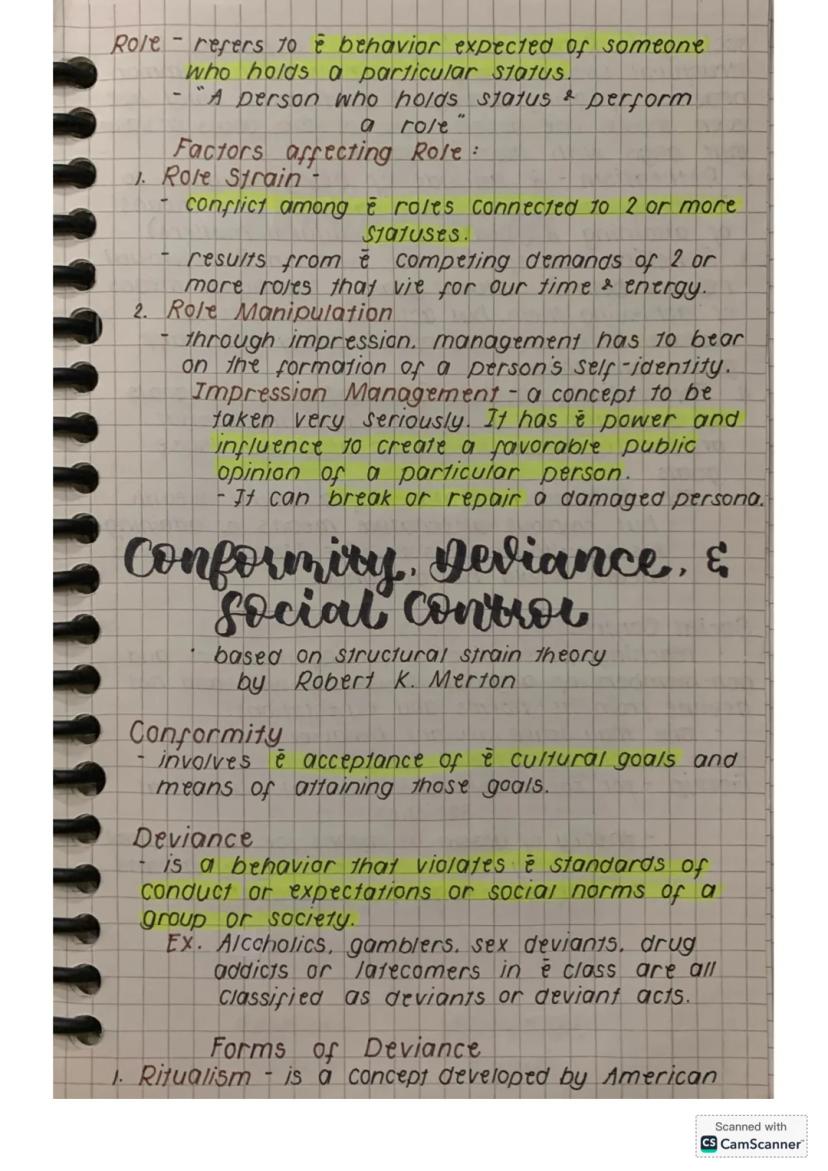 Role - refers to ē behavior expected of someone
who holds a particular status.
- "A person who holds status & perform
a role"
Factors affecting Role:
1. Role Strain -
- conflict among ē roles connected to 2 or more
statuses.
- results from ē competing demands of 2 or
more roles that vie for our time & energy.
2. Role Manipulation
- through impression. management has to bear
on the formation of a person's self-identity.
Impression Management - a concept to be
taken very seriously. It has ē power and
influence to create a favorable public
opinion of a particular person.
- It can break or repair a damaged persona.
Conformity, Deviance, &
Social Control
· based on structural strain theory
by Robert K. Merton
Conformity
- involves ē acceptance of ē cultural goals and
means of attaining those goals.
Deviance
- is a behavior that violates ē standards of
conduct or expectations or social norms of a
group or society.
Ex. Alcoholics, gamblers, sex deviants, drug
addicts or latecomers in ē class are all
classified as deviants or deviant acts.
Forms of Deviance
1. Ritualism - is a concept developed by American
Scanned with
CS CamScanner